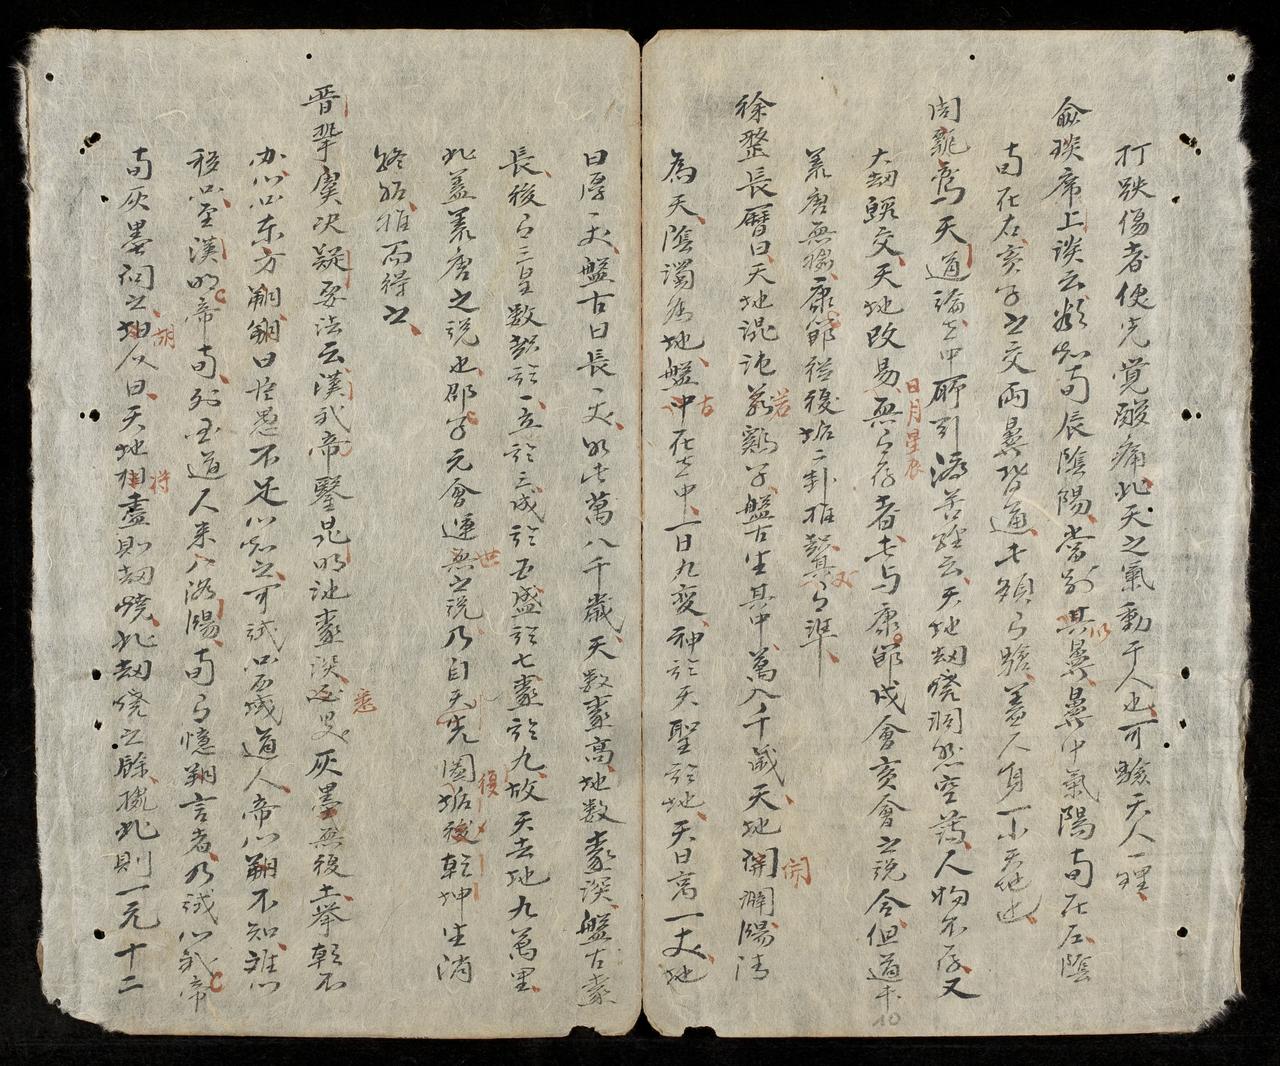 打跌傷者使先覺酸痛此天之氣動于人也可驗天人一理
俞琰席上談云欲知時辰陰陽當別其鼻鼻中氣陽時在左陰
時在右亥子之交兩鼻皆通七頗有驗蓋人身一小天地也
周寵鳶天道論云中所引濟苦經云天地劫燒洞然空蕩人物不存又
日月星辰
大劫終交天地改易無有存者去与康節戌會亥會之說合但道
羌唐無據康節從復垢二卦推
徐整長曆曰天地混沌若鷄子盤古生其中萬八千歲天地開闢陽清
為天陰濁為地盤古在其中一日九變神於天聖於地天日高一丈地
日厚一丈盤古日長一丈如此萬八千歲天數極高地數極深盤古極
長後有三皇數起於一立於三成於五盛於七處於九故天去地九萬里
此蓋荒唐之說也邵子元會運世之說乃自先天圖垢復乾坤生消
終始推而得之
晉摯虞決疑要法云漢武帝鑿昆明池極深悉是灰墨無復土舉朝不
知以問東方朔朔曰臣愚不足以知之可試問西域道人帝以朔不知難以
移問至漢明帝時外國道人來入洛陽時有憶朔言者乃試以武帝
時灰墨問之胡人曰天地將盡則劫燒此劫燒之餘據此則一元十二